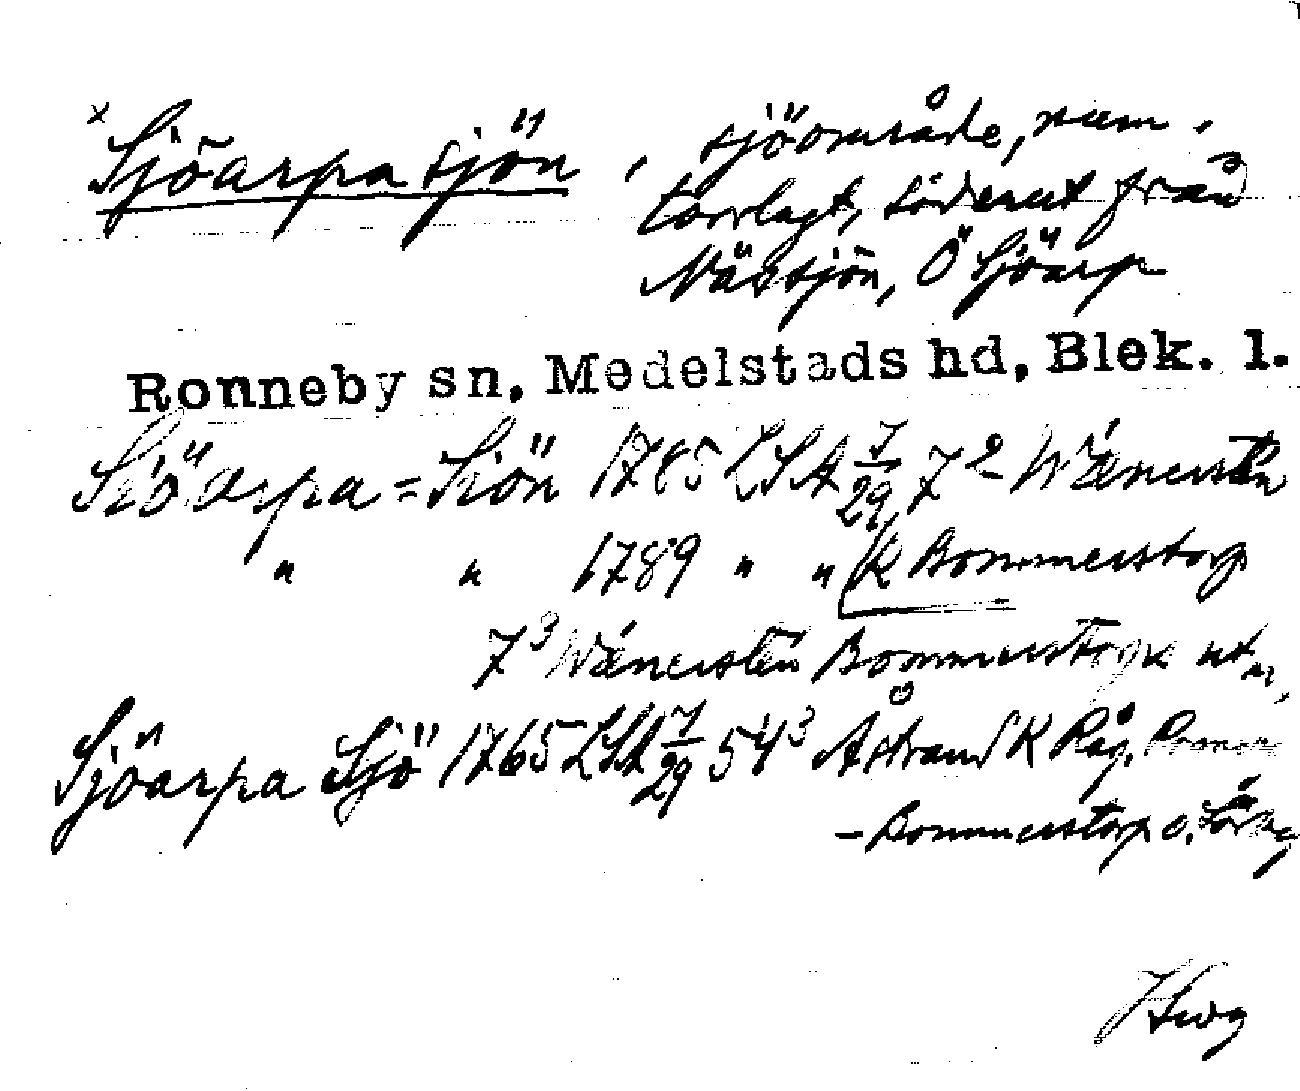 x Sjöarpasjön, sjöområde, num.
torrlagt, söderut från
Nässjön, Ö Sjöarp
Ronneby sn, Medelstads hd, Blek. l.
Siöarpa=Siön 1785 LSA 7/29 7² Wänersten
" " 1789 " " K Bommerstorp
7³ Wänersten Bommerstorps utm,
Sjöarpa Sjö 1765 LSA 7/29 54³ Åstrand K Råg.
- Bommerstorp o.